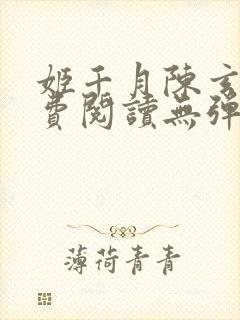 姬千月陳玄
費閱讀無彈
薄荷青青